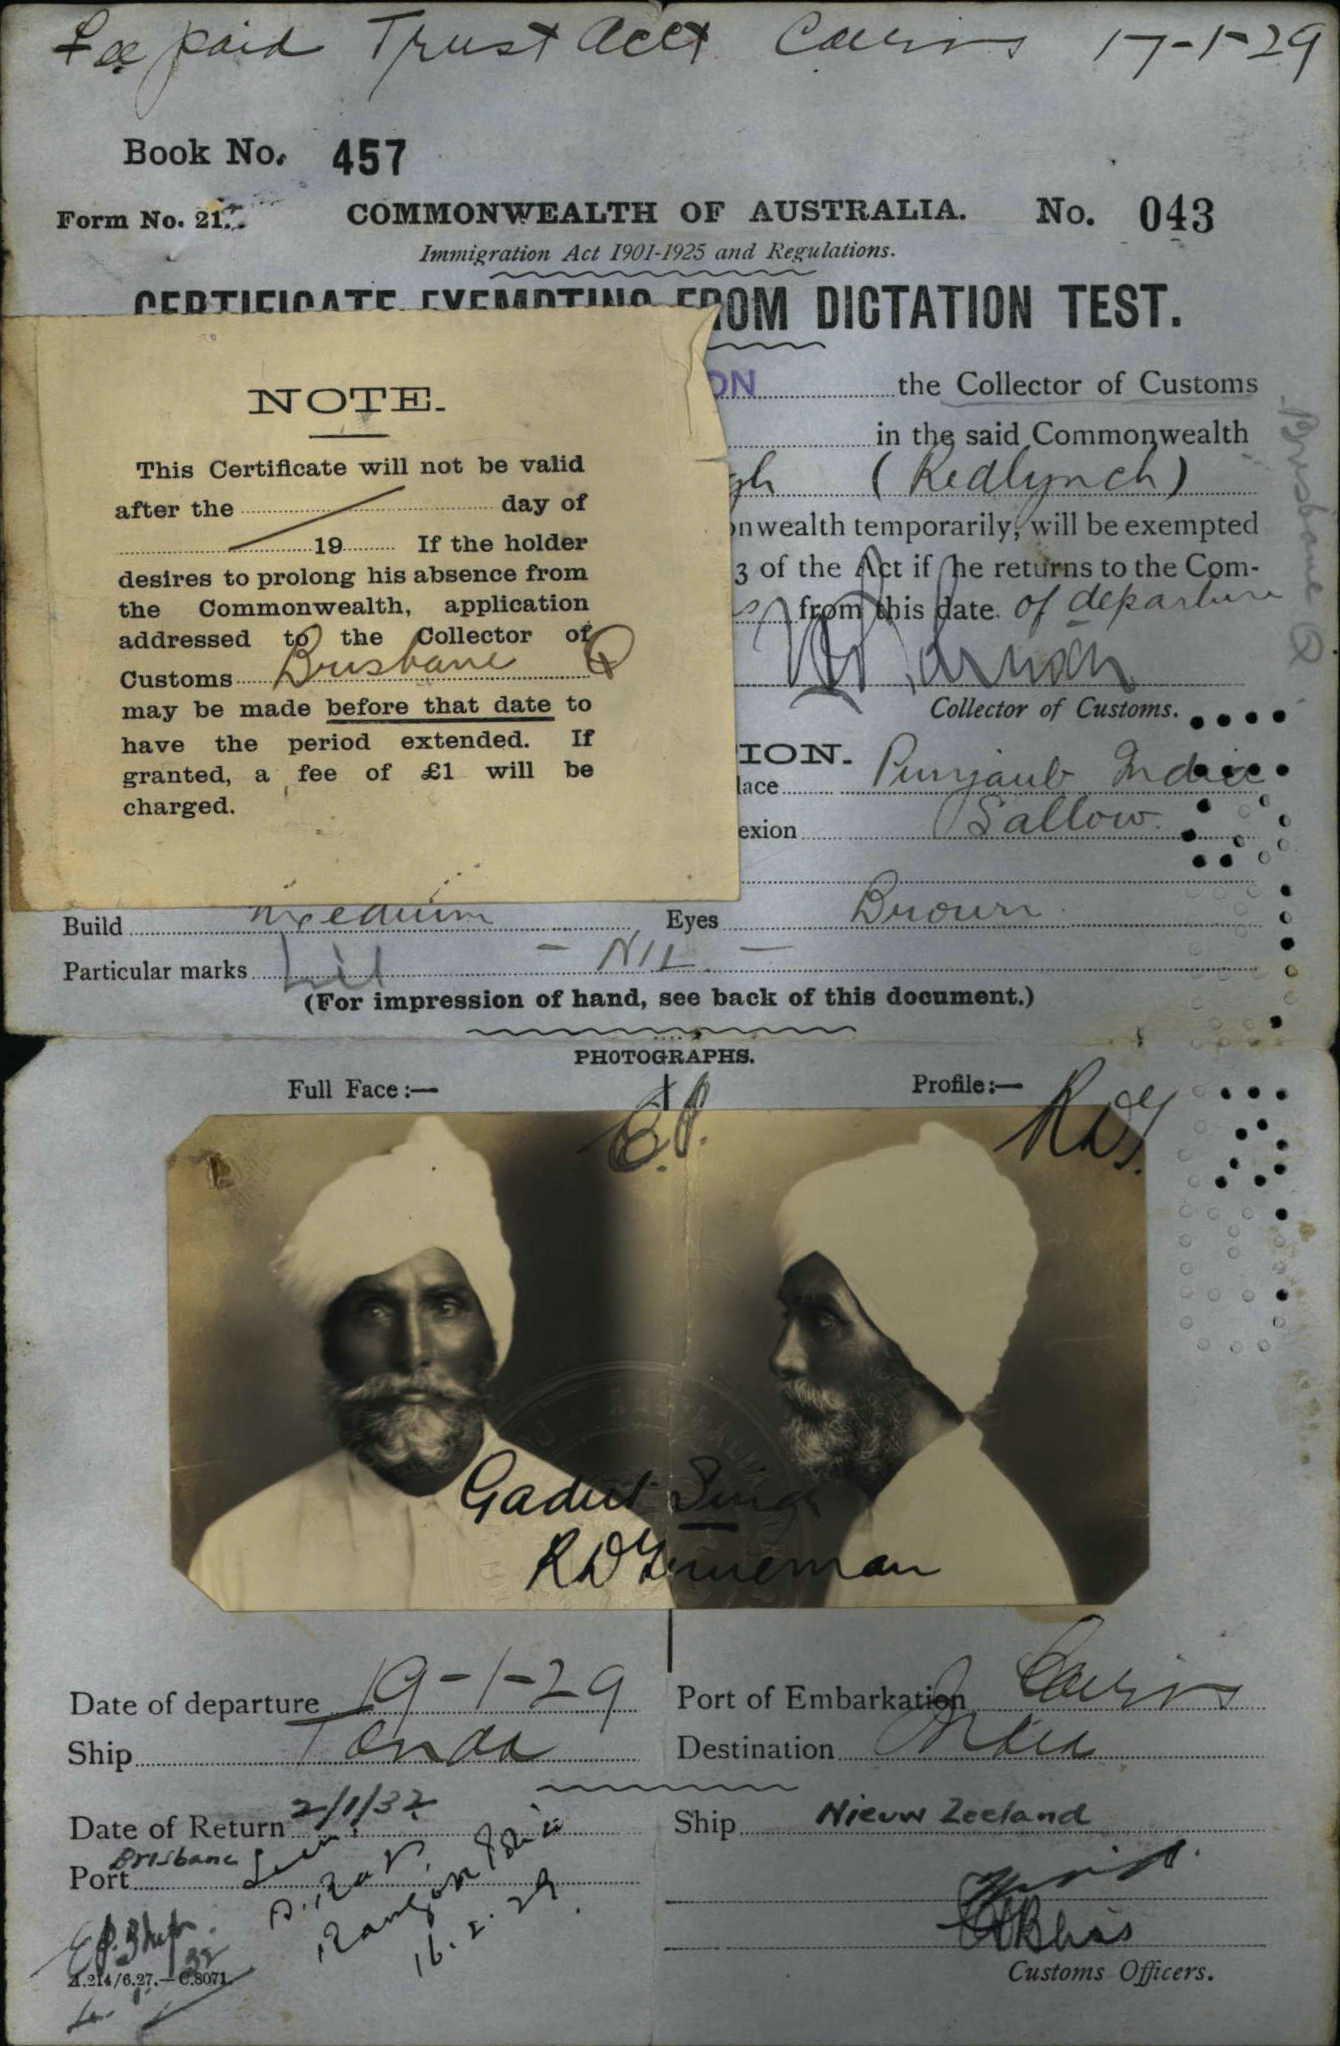 Fee paid Trust Acct Cairns 17-1-29
Book No. 457
Form No. 21.
COMMONWEALTH OF AUSTRALIA. No. 043
Immigration Act 1901-1925 and Regulations.
CERTIFICATE EXEMPTING FROM DICTATION TEST.
ON the Collector of Customs
in the said Commonwealth
gh (Redlynch)
onwealth temporarily, will be exempted
3 of the Act if he returns to the Com-
s from this date of departure
Collector of Customs.
Brisbane Q
NOTE.
This Certificate will not be valid
after the day of
19 If the holder
desires to prolong his absence from
the Commonwealth, application
addressed to the Collector of
Customs Brisbane Q
may be made before that date to
have the period extended. If
granted, a fee of £1 will be
charged.
ION.
lace Punjaub India
exion Sallow.
Build Medium Eyes Brown
Particular marks - NIL -
(For impression of hand, see back of this document.)
PHOTOGRAPHS.
Full Face:— Profile:—
Gadit Singh
Date of departure 19-1-29 Port of Embarkation Cairns
Ship Tanda Destination India
Date of Return 2/1/32 Ship Nieuw Zeeland
Port Brisbane
16.2.29
Customs Officers.
A.214/6.27.—C.8071.